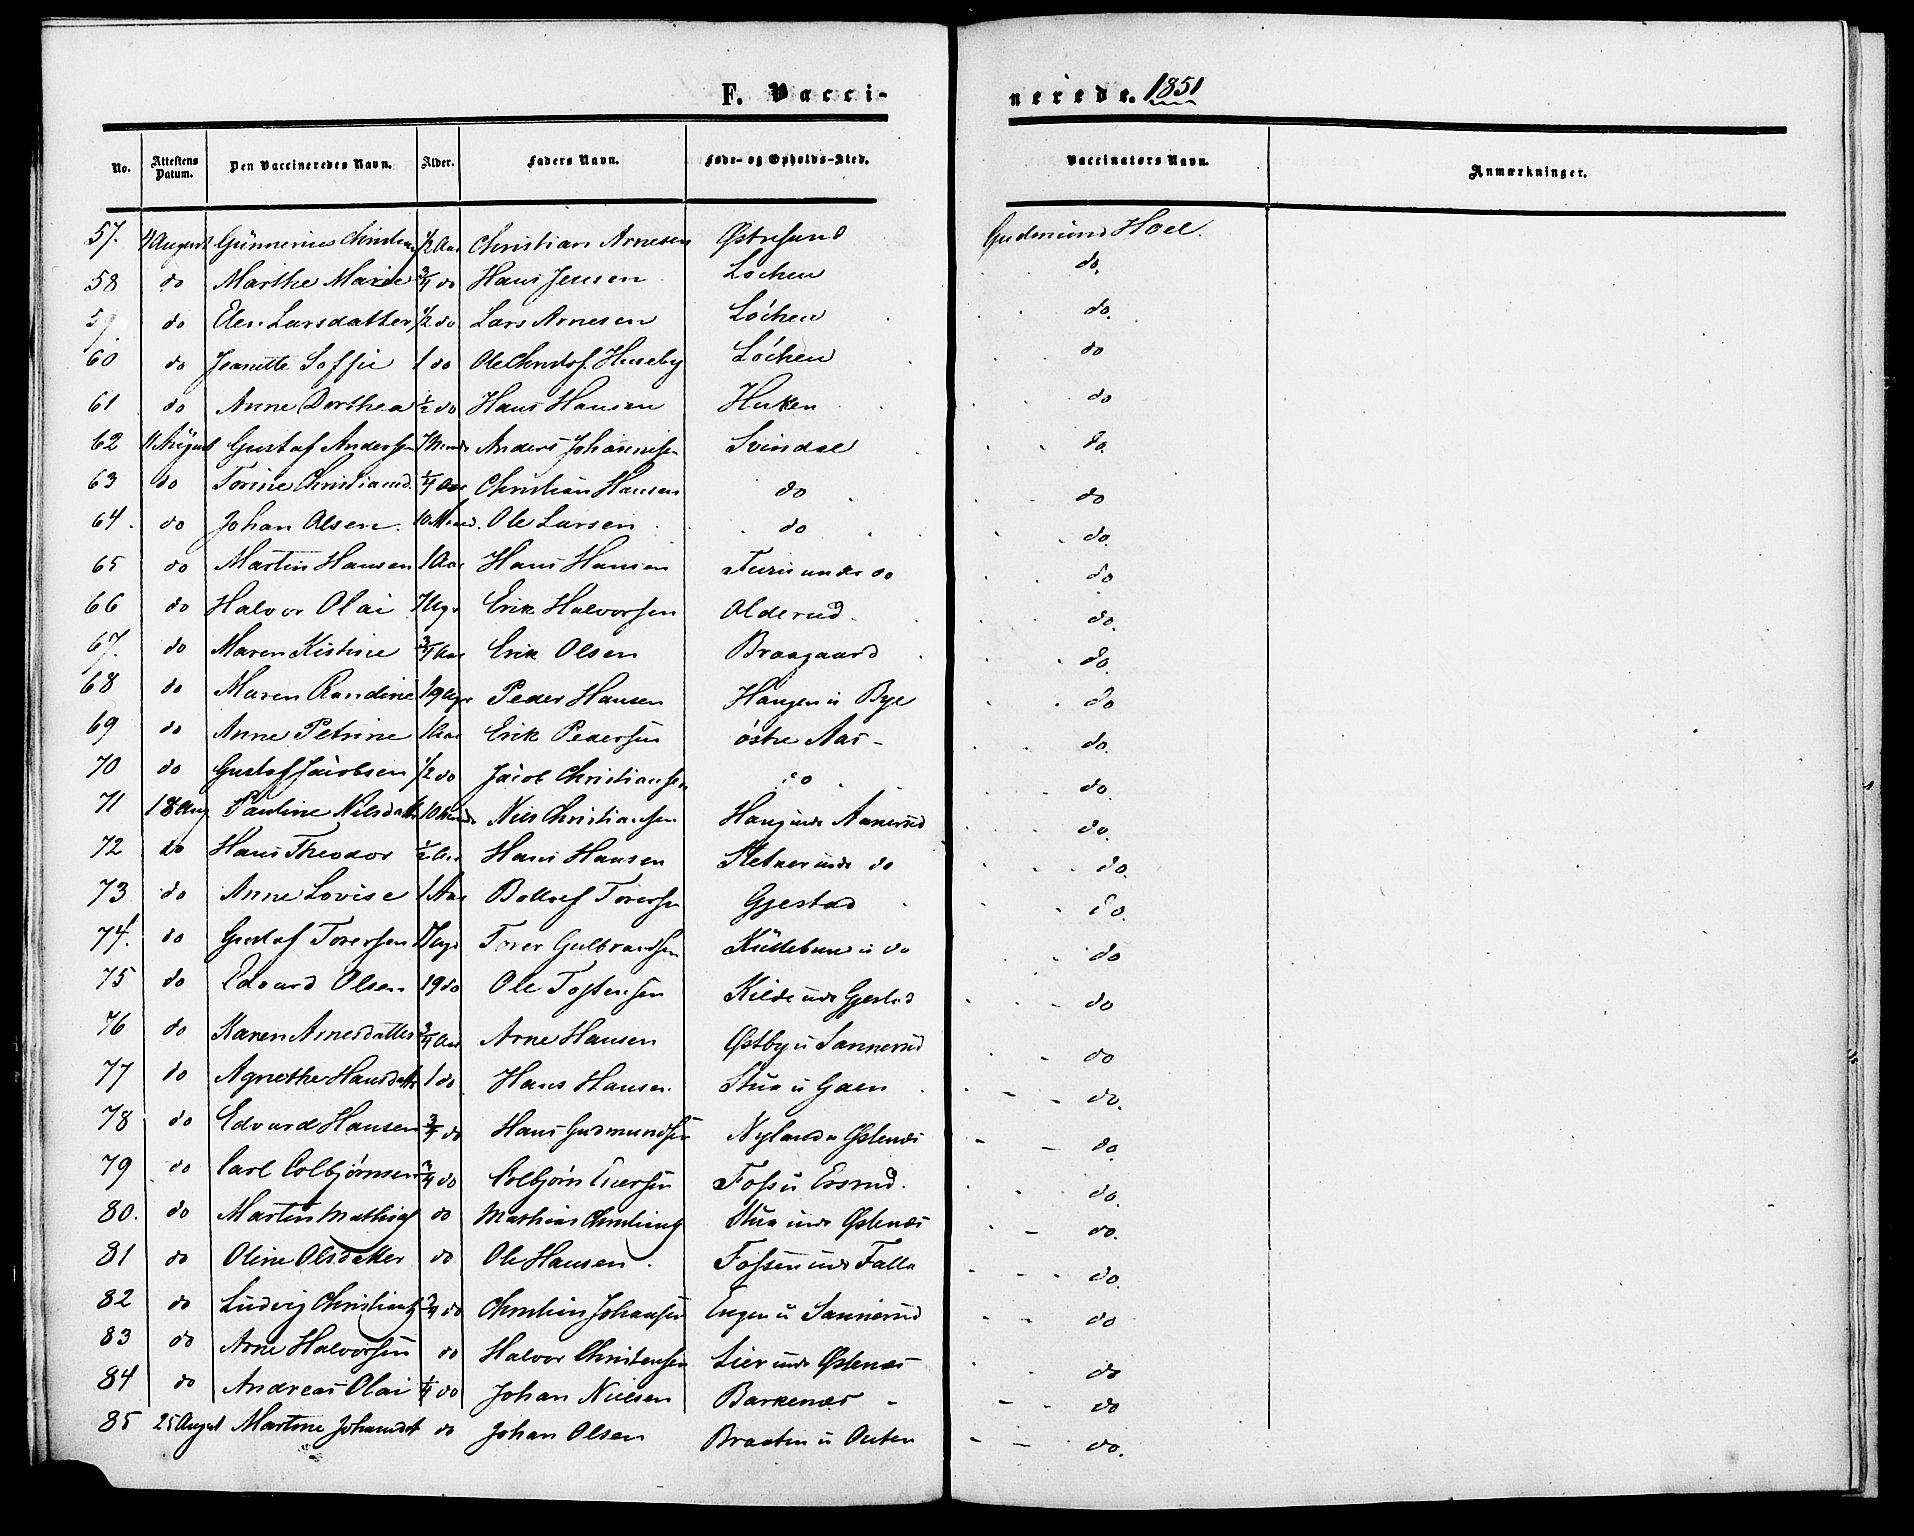 F. Vacci-
nerede. 1851
No. Attestens Datum. Den Vaccineredes Navn. Alder. Faders Navn. Føde- og Opholds-Sted. Vaccinators Navn. Anmærkninger.
57. August Gunnerius 1/2 Aar Christian Arnesen Østresund Gudmund Hoel.
58 do Marthe Marie 3/4 do Hans Jensen Løchen do.
59. do Elen Larsdatter 1/2 do Lars Arnesen Løchen do.
60 do Jeanette Soffie 1 do Ole Huseby Løchen do
61 do Anne Dorthea 1/2 do Hans Hansen do
62 11 August Gustaf Anderssen 7 Anders Johannesen Svindal do.
63 do Torine 1/4 Aar Christian Hansen do do
64. do Johan Olsen. 10 Ole Larsen do do.
65 do Martin Hansen 1 Aar Hans Hansen do do
66 do Halvor Olai Erik Halvorsen Olderud do.
67. do Maren Kistine 3/4 Aar Erik Olsen Braagaard do.
68 do Maren Randine 19 Peder Hansen Haugen u Bye do
69 do Anne Petrine 1 Aar Erik Pedersen østre Aas - do.
70 do Gustaf Jacobsen 1/2 do Jacob Christiansen do do.
71 18 Aug Pauline Nilsdatt 10 Niels Christiansen do.
72 do Hans Theodor 1/2 Aar Hans Hansen do do.
73 do Anne Lovise 1 Aar Gjestad do.
74. do Gustaf Toversen Tover Gulbrandsen u do do
75 do Edvard Olsen 19 do Ole Tostensen Kilde unde Gjestad do
76 do Karen Arnesdatter 3/4 Aar Arne Hansen Østby u Sannerud do
77 do Agnethe Hansdatt 1 do Hans Hansen Stua u Gaen do.
78 do Edvard Hansen 3/4 do Hans Gudmundsen Nyland u Østenæs do.
79 do Carl Colbjørnsen 3/4 do Colbjørn Foss u do.
80. do Martin do Mathias Stua unde Østenæs do.
81 do Oline Olsdatter do Ole Hansen. Fossen unde Falla do.
82 do Ludvig 3/4 do Christian Johansen Engen u Sannerud do
83 do Arne Halvorsen do Halvor Christensen Lier unde Østenæs do
84 do Andreas Olai 1/4 do Johan Nielsen Barkenæs - do
85 25 August Martine Johannsdt do Johan Olsen Braaten u do.